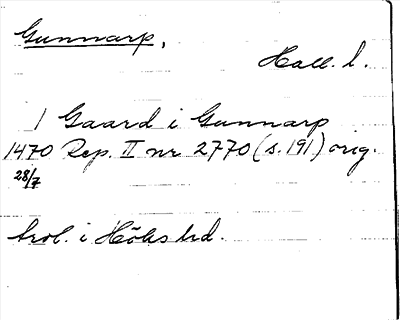 Gunnarp,
Hall. l.
1 Gaard i Gunnarp
1470 Rep. II nr 2770 (s. 191) orig.
28/7
trol. i Höks hd.